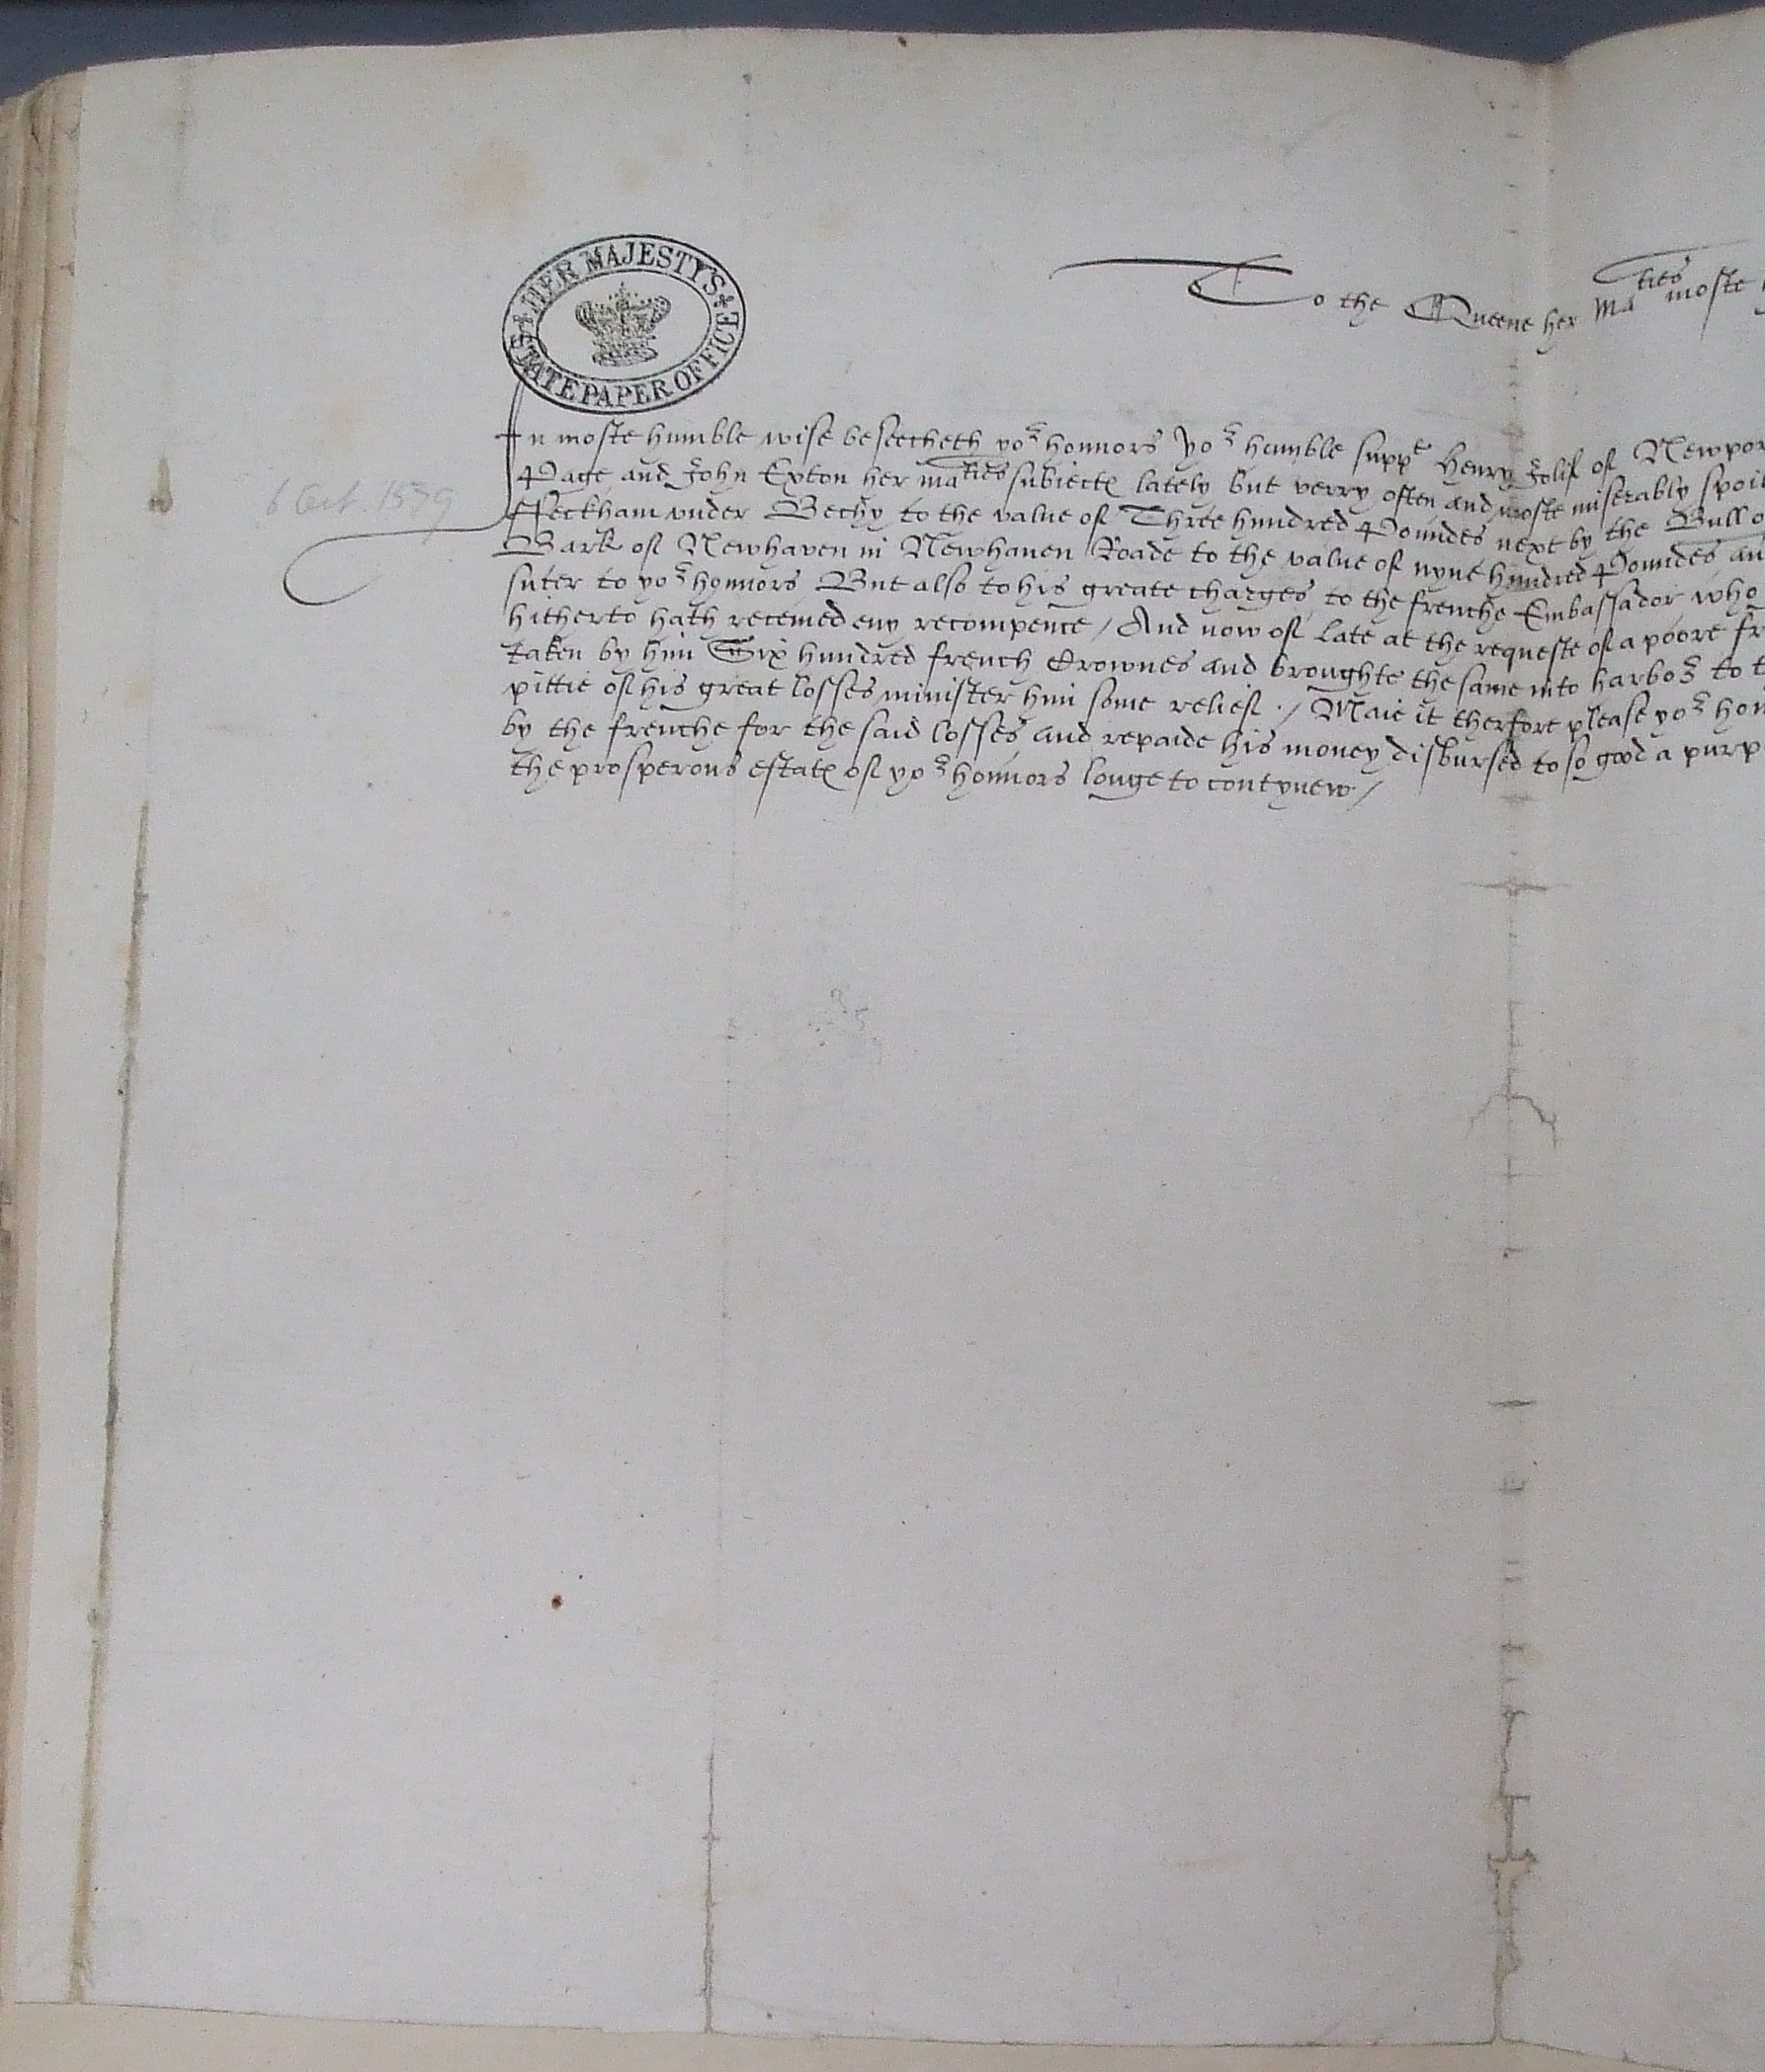 HER MAJESTY'S
STATE PAPER OFFICE
To the Queene her Ma^ties moste
6 Oct. 1579
In moste humble wise beseecheth yo^r honnors yo^r humble supp^e Henry Jolif of Newpor
Page and John Exton her ma^ties subiectes lately but verry often and moste miserably spoil
Peckham vnder Bechy to the value of Three hundred Poundes next by the Bull o
Bark of Newhaven in Newhauen Roade to the value of nyne hundred Poundes an
suter to yo^r honnors But also to his greate charges to the frenche Embassador who
hitherto hath receiued eny recompence / And now of late at the requeste of a poore fr
taken by him Six hundred french Crownes and broughte the same into harbo^r to t
pittie of his great losses minister him some relief ./ Maie it therfore please yo^r hon
by the frenche for the said losses and repaide his money disbursed to so good a purp
the prosperous estate of yo^r honnors longe to contynew /